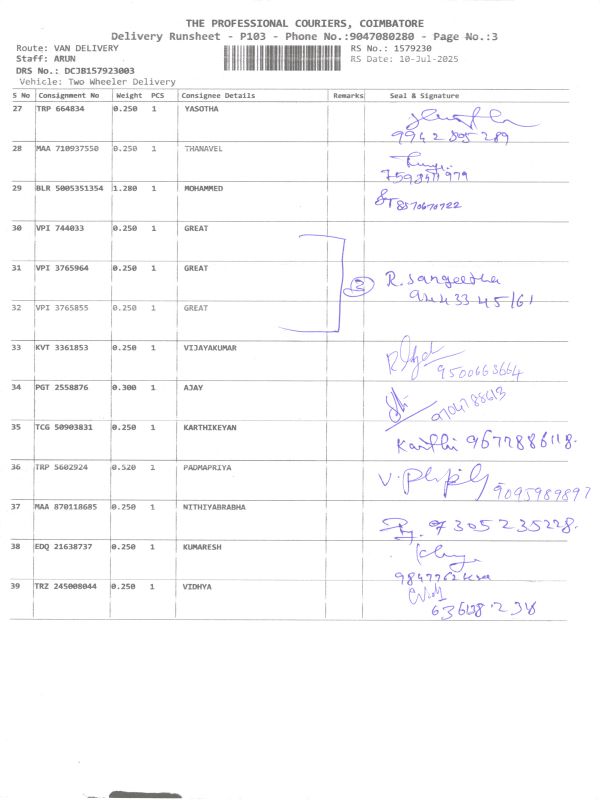 THE PROFESSIONAL COURIERS, COIMBATORE
Delivery Runsheet - P103 - Phone No.:9047080280 - Page No.:3
Route: VAN DELIVERY RS No.: 1579230
Staff: ARUN RS Date: 10-Jul-2025
DRS No.: DCJB157923003
Vehicle: Two Wheeler Delivery
S No Consignment No Weight PCS Consignee Details Remarks Seal & Signature
27 TRP 664834 0.250 1 YASOTHA
9942 805 289
28 MAA 710937550 0.250 1 THANAVEL
29 BLR 5005351354 1.280 1 MOHAMMED
8570670722
30 VPI 744033 0.250 1 GREAT
31 VPI 3765964 0.250 1 GREAT
R. Sangeetha
32 VPI 3765855 0.250 1 GREAT
33 KVT 3361853 0.250 1 VIJAYAKUMAR
9500663664
34 PGT 2558876 0.300 1 AJAY
35 TCG 50903831 0.250 1 KARTHIKEYAN
Karthi 9677886118.
36 TRP 5602924 0.520 1 PADMAPRIYA
9095989897
37 MAA 870118685 0.250 1 NITHIYABRABHA
97305235228.
38 EDQ 21638737 0.250 1 KUMARESH
39 TRZ 245008044 0.250 1 VIDHYA